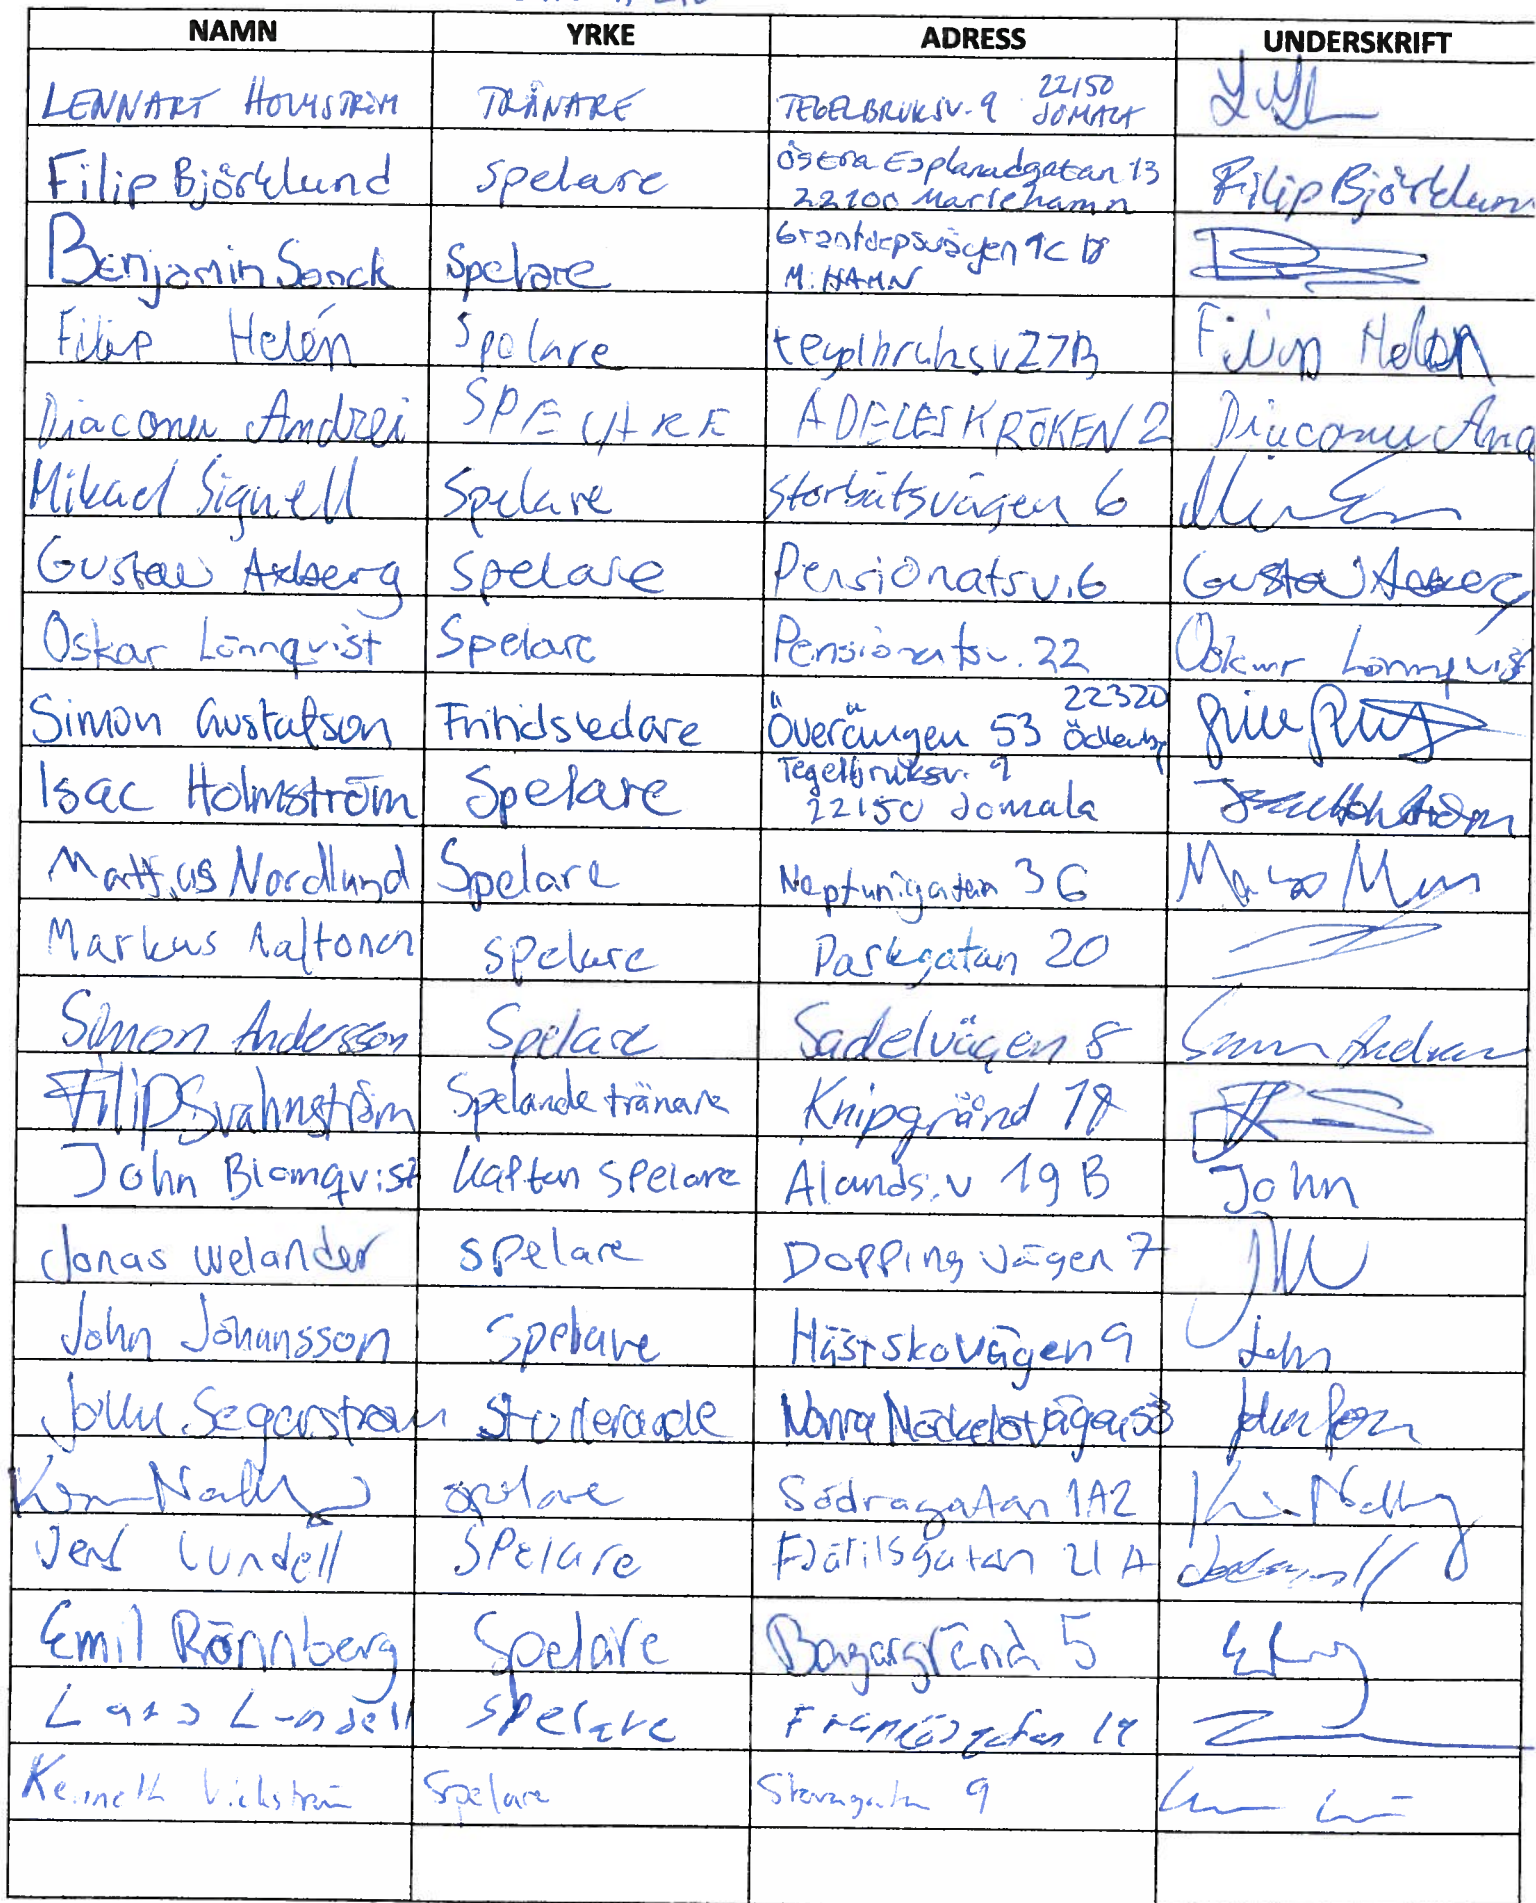 NAMN YRKE ADRESS UNDERSKRIFT
LENNART HOLMSTRÖM TRÄNARE TEGELBRUKSV. 9 22150 JOMALA
Filip Björklund Spelare Östra Esplanadgatan 13 22100 Mariehamn Filip Björklund
Benjamin Sonck Spelare M.HAMN
Filip Helén Spelare tegelbruksv 27B Filip Helén
Diaconu Andrei SPELARE ADELESKRÖKEN 2 Diaconu And
Mikael Signell Spelare Storbåtsvägen 6
Gustav Axberg Spelare Pensionatsv. 6 Gustav Axberg
Oskar Lönnqvist Spelare Pensionatsv. 22 Oskar Lönnqvist
Simon Gustafson Fritidsledare Överängen 53 22320 Ödkarby
Isac Holmström Spelare Tegelbruksv. 9 22150 Jomala Isac Holmström
Mattias Nordlund Spelare Neptunigatan 3G
Markus Aaltonen Spelare Parkgatan 20
Simon Andersson Spelare Sadelvägen 8 Simon Andersson
Filip Svahnström Spelande tränare Knipgränd
John Blomqvist Kapten Spelare Ålands.v 19 B John
Jonas Welander Spelare Doppingvägen 7 JW
John Johansson Spelare Hästskovägen 9 John
Segerström Studerande Norra
Spelare Södragatan 1A2
Jens Lundell Spelare Fjärilsgatan 21 A
Emil Rönnberg Spelare Bagargränd 5
Lars Lundell Spelare
Kenneth Vickström Spelare Storagatan 9